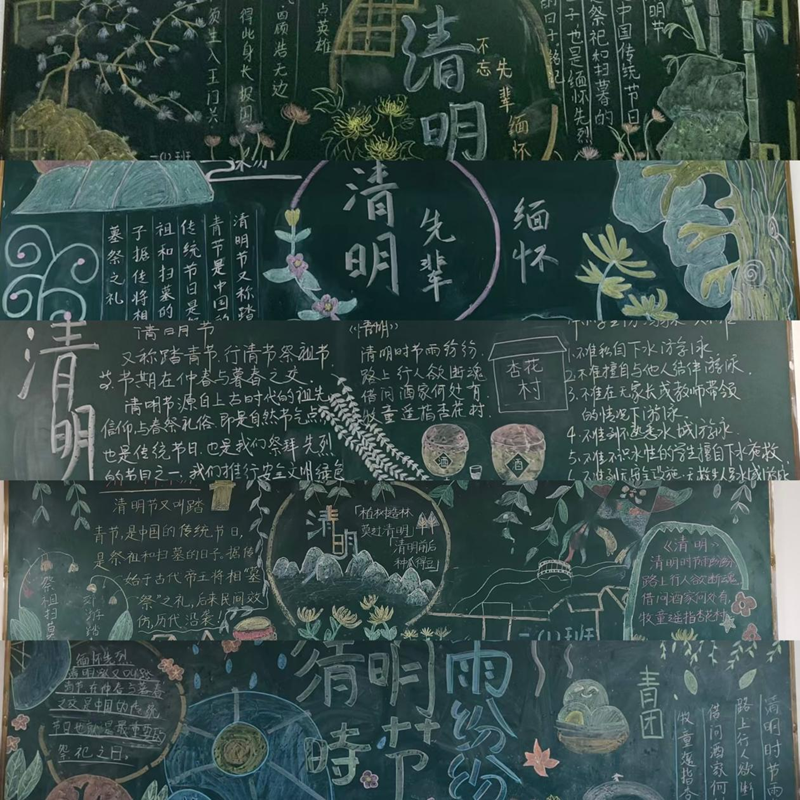 清明
不忘
先辈
缅怀
点英雄
四顾浩无边
得此身长报国
须生入玉门关
中国传统节日
是祭祀和扫墓的
日子也是缅怀先烈
清明
先辈
缅怀
清明节又称踏
青节是中国的
传统节日是
祖和扫墓的
子据传将相
墓祭之礼
清明
清明节
又称踏青节、行清节、祭祖节
节期在仲春与暮春之交.
清明节源自上古时代的祖先
信仰与春祭礼俗,即是自然节气点
也是传统节日,也是我们祭拜先烈
的节日之一,我们推行安全文明绿色
《清明》
清明时节雨纷纷,
路上行人欲断魂
借问酒家何处有
牧童遥指杏花村.
杏花
村
酒
酒
1.不准私自下水游泳
2.不准擅自与他人结伴游泳.
3.不准在无家长或教师带领
的情况下游泳.
4.不准到不熟悉水域游泳.
5.不准不识水性的学生擅自下水施救
清明节又叫踏
青节,是中国的传统节日,
是祭祀和扫墓的日子.据传
始于古代帝王将相"墓
祭"之礼,后来民间效
仿,历代沿袭!
祭祖扫墓
清明
植树造林
莫过清明
清明前后
种瓜种豆
《清明》
清明时节雨纷纷
路上行人欲断魂
借问酒家何处有
牧童遥指杏花村
缅怀先烈
祭祀之日.
清明节
時
雨纷纷
青团
清明时节雨
路上行人欲断
借问酒家何
牧童遥指杏